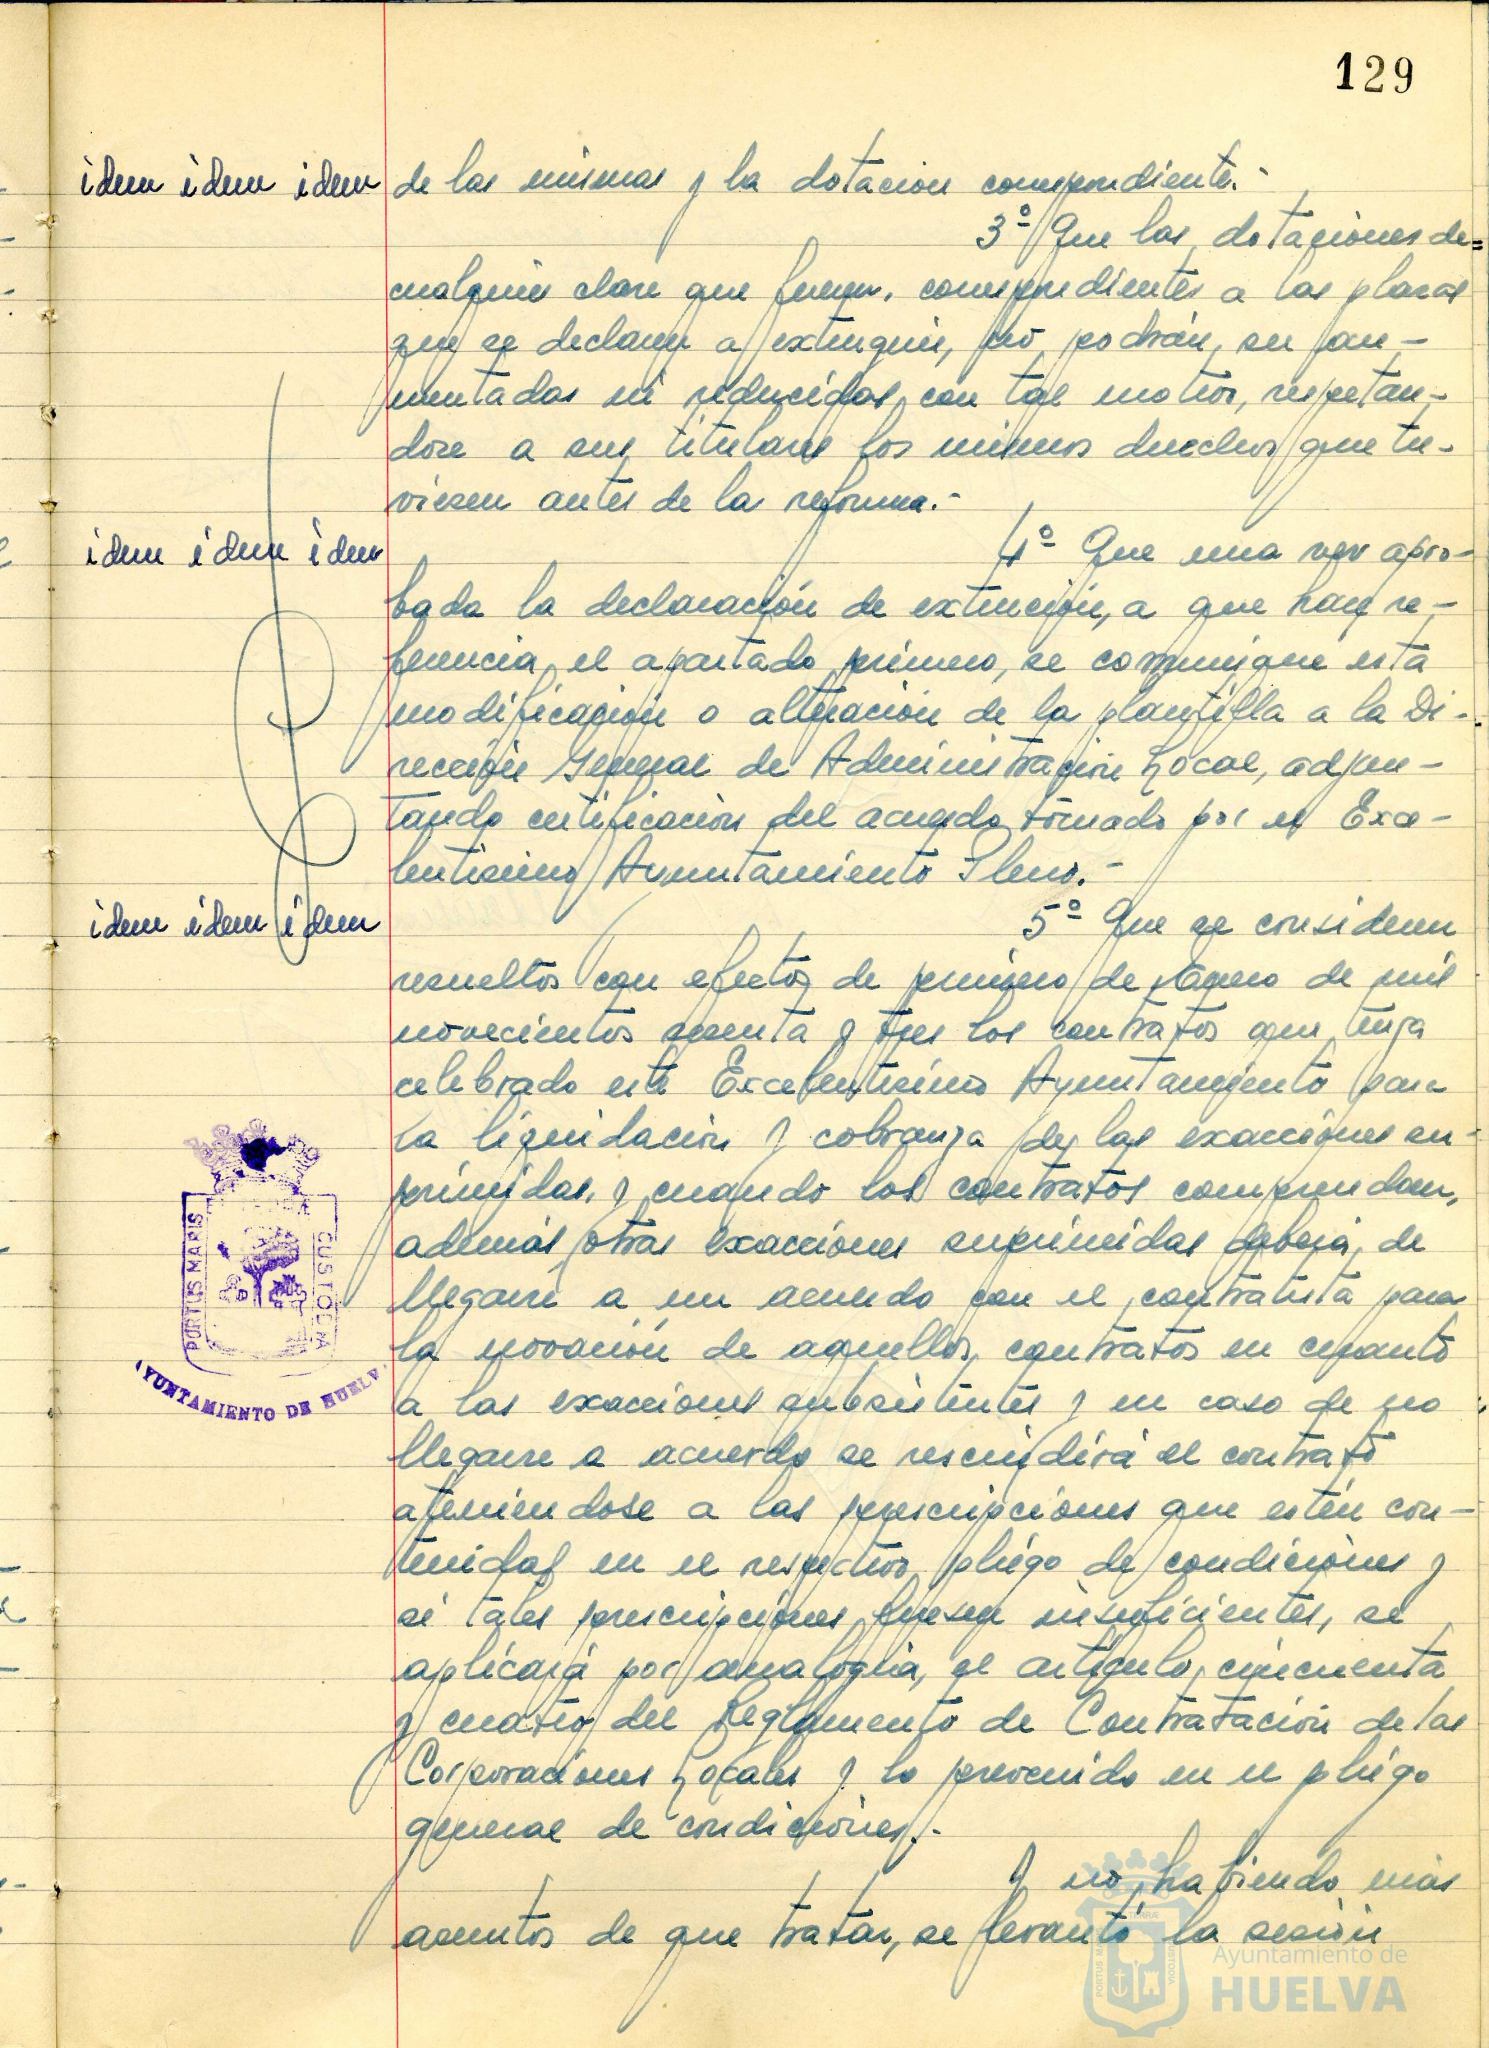 129
idem idem idem
de las mismas y la dotación correspondiente.-
3º Que las dotaciones de=
cualquier clase que fueren, correspondientes a las plazas
que se declaren a extinguir, no podrán ser au-
mentadas ni reducidas con tal motivo, respetan-
dose a sus titulares los mismos derechos que tu-
viesen antes de la reforma.-
idem idem idem
4º Que una vez apro-
bada la declaración de extinción, a que hace re-
ferencia el apartado primero, se comunique esta
modificación o alteración de la plantilla a la Di-
rección General de Administración Local, adjun-
tando certificación del acuerdo tomado por el Exce-
lentísimo Ayuntamiento Pleno.-
idem idem idem
5º Que se consideren
resueltos con efectos de primero de Enero de mil
novecientos sesenta y tres los contratos que tenga
celebrado este Excelentísimo Ayuntamiento para
la liquidación y cobranza de las exacciones su-
primidas, y cuando los contratos comprendan,
además, otras exacciones suprimidas deberá de
llegarse a un acuerdo con el contratista para
la novación de aquellos contratos en cuanto
a las exacciones subsistentes y en caso de no
llegarse a acuerdo se rescindirá el contrato
ateniendose a las prescripciones que estén con-
tenidas en el respectivo pliego de condiciones y
si tales prescripciones fuesen insuficientes, se
aplicará por analogía, el artículo cincuenta
y cuatro del Reglamento de Contratación de las
Corporaciones Locales y lo prevenido en el pliego
general de condiciones.-
Y no habiendo más
asuntos de que tratar, se levantó la sesión
PORTUS MARIS
CUSTODIA
AYUNTAMIENTO DE HUELVA
Ayuntamiento de
HUELVA